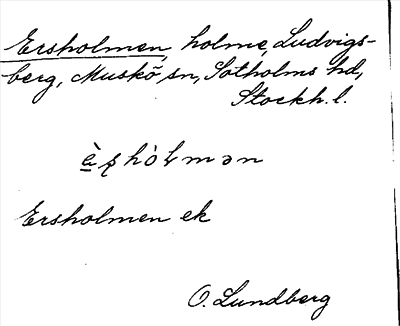 Ersholmen, holme, Ludvigs-
berg, Muskö sn, Sotholms hd,
Stockh. l.
è̱ʂhòɫmən
Ersholmen ek
O. Lundberg